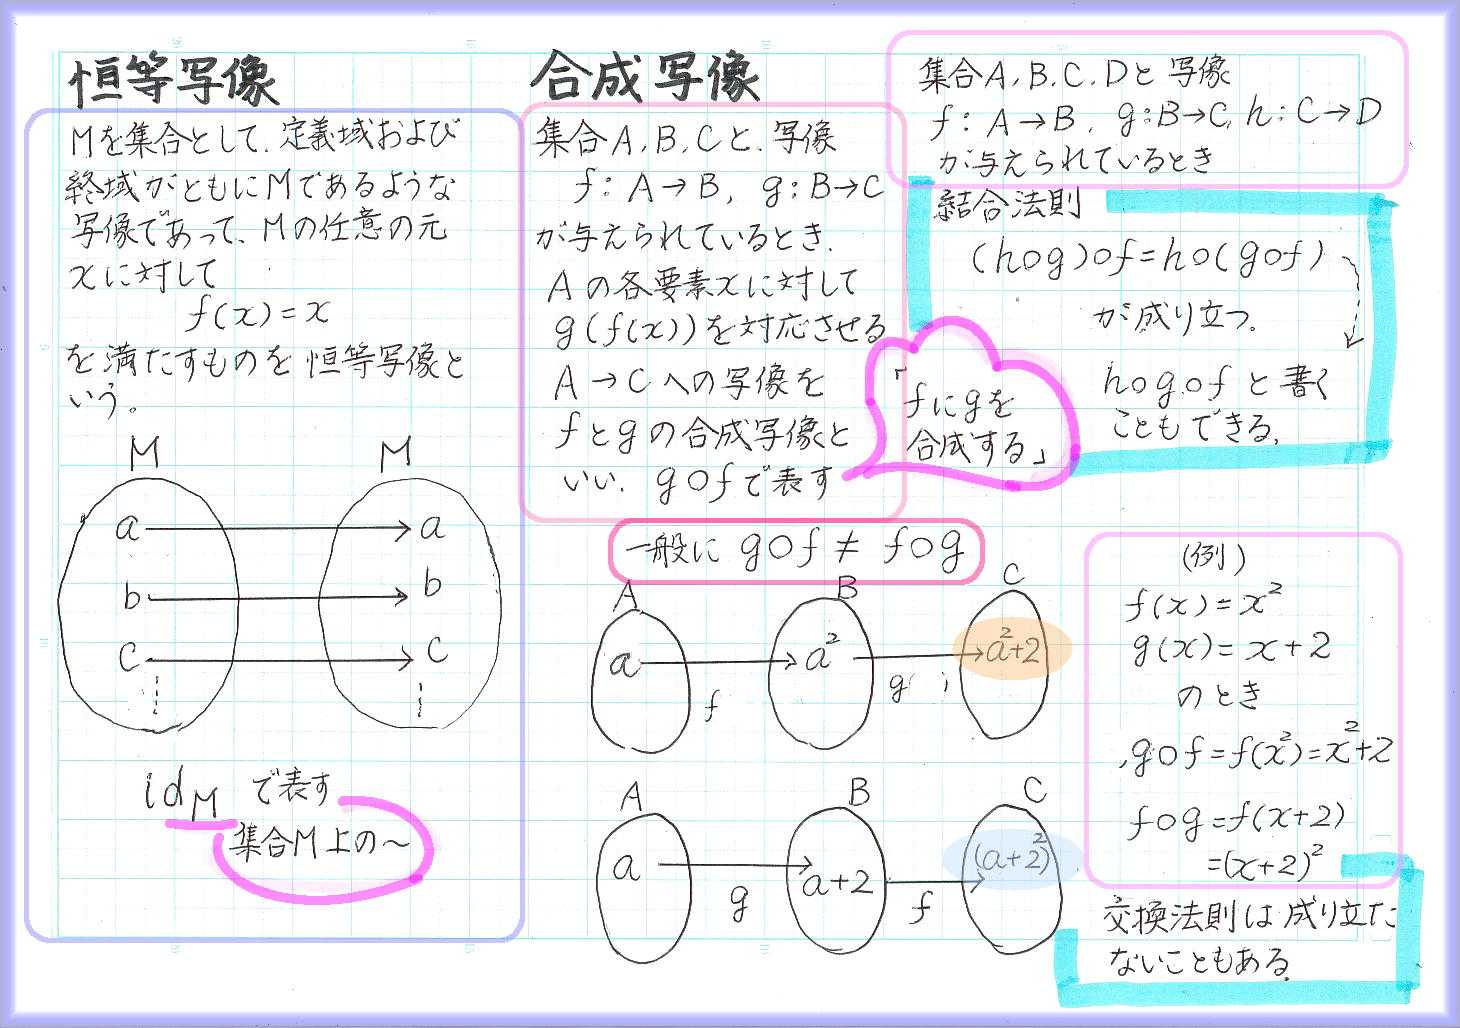 恒等写像
Mを集合として、定義域および
終域がともにMであるような
写像であって、Mの任意の元
xに対して
f(x)=x
を満たすものを恒等写像と
いう。
M M
a a
b b
c c
idM で表す
集合M上の〜
合成写像
集合A,B,Cと、写像
f:A→B, g:B→C
が与えられているとき、
Aの各要素xに対して
g(f(x))を対応させる
A→Cへの写像を
fとgの合成写像と
いい、g○fで表す
「fにgを
合成する」
一般に g○f≠f○g
A B C
a a² a²+2
f g
A B C
a a+2 (a+2)²
g f
集合A,B,C,Dと写像
f:A→B, g:B→C, h:C→D
が与えられているとき
結合法則
(h○g)○f=h○(g○f)
が成り立つ。
h○g○fと書く
こともできる。
(例)
f(x)=x²
g(x)=x+2
のとき
g○f=f(x²)=x²+2
f○g=f(x+2)
=(x+2)²
交換法則は成り立た
ないこともある。